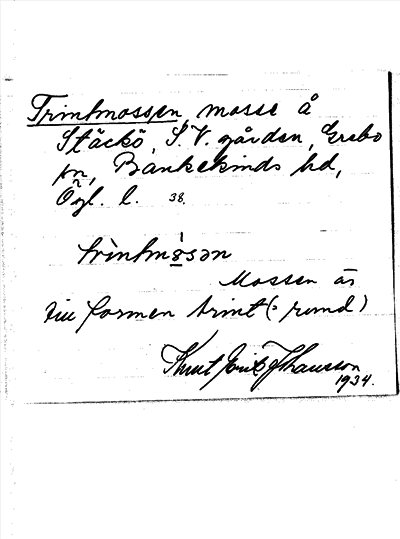 Trintmossen, mosse å
Stäckö, S.V. gården, Grebo
sn, Bankekinds hd,
Ögl. l. 38.
trintmosən
Mossen är
till formen trint (= rund)
Knut Erik Johansson
1934.